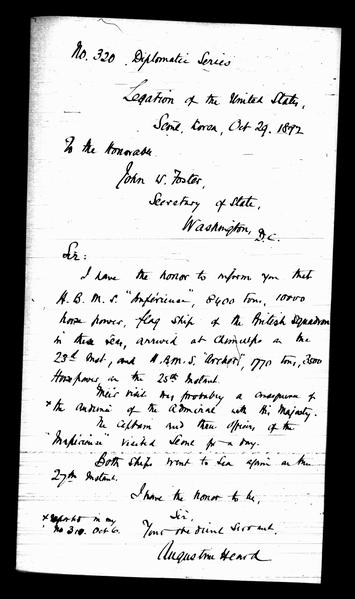 No. 320 Diplomatic Series
Legation of the United States,
Seoul, Korea, Oct 29. 1892
To the Honorable
John W. Foster,
Secretary of State,
Washington, D.C.
Sir:
I have the honor to inform you that
H.B.M.S. "Impérieuse", 8400 tons, 10000
horse power, flag ship of the British Squadron
in these seas, arrived at Chemulpo on the
23d inst, and H.B.M.S. "Archer", 1770 tons, 3500
Horsepower on the 25th instant.
Their visit was probably a consequence of
x the audience of the Admiral with His Majesty.
The Captain and three officers of the
"Impérieuse" visited Seoul for a day.
Both ships went to sea again on the
27th instant.
I have the honor to be,
Sir,
Your obedient servant.
Augustine Heard
x reported in my
No 310. Oct 6.